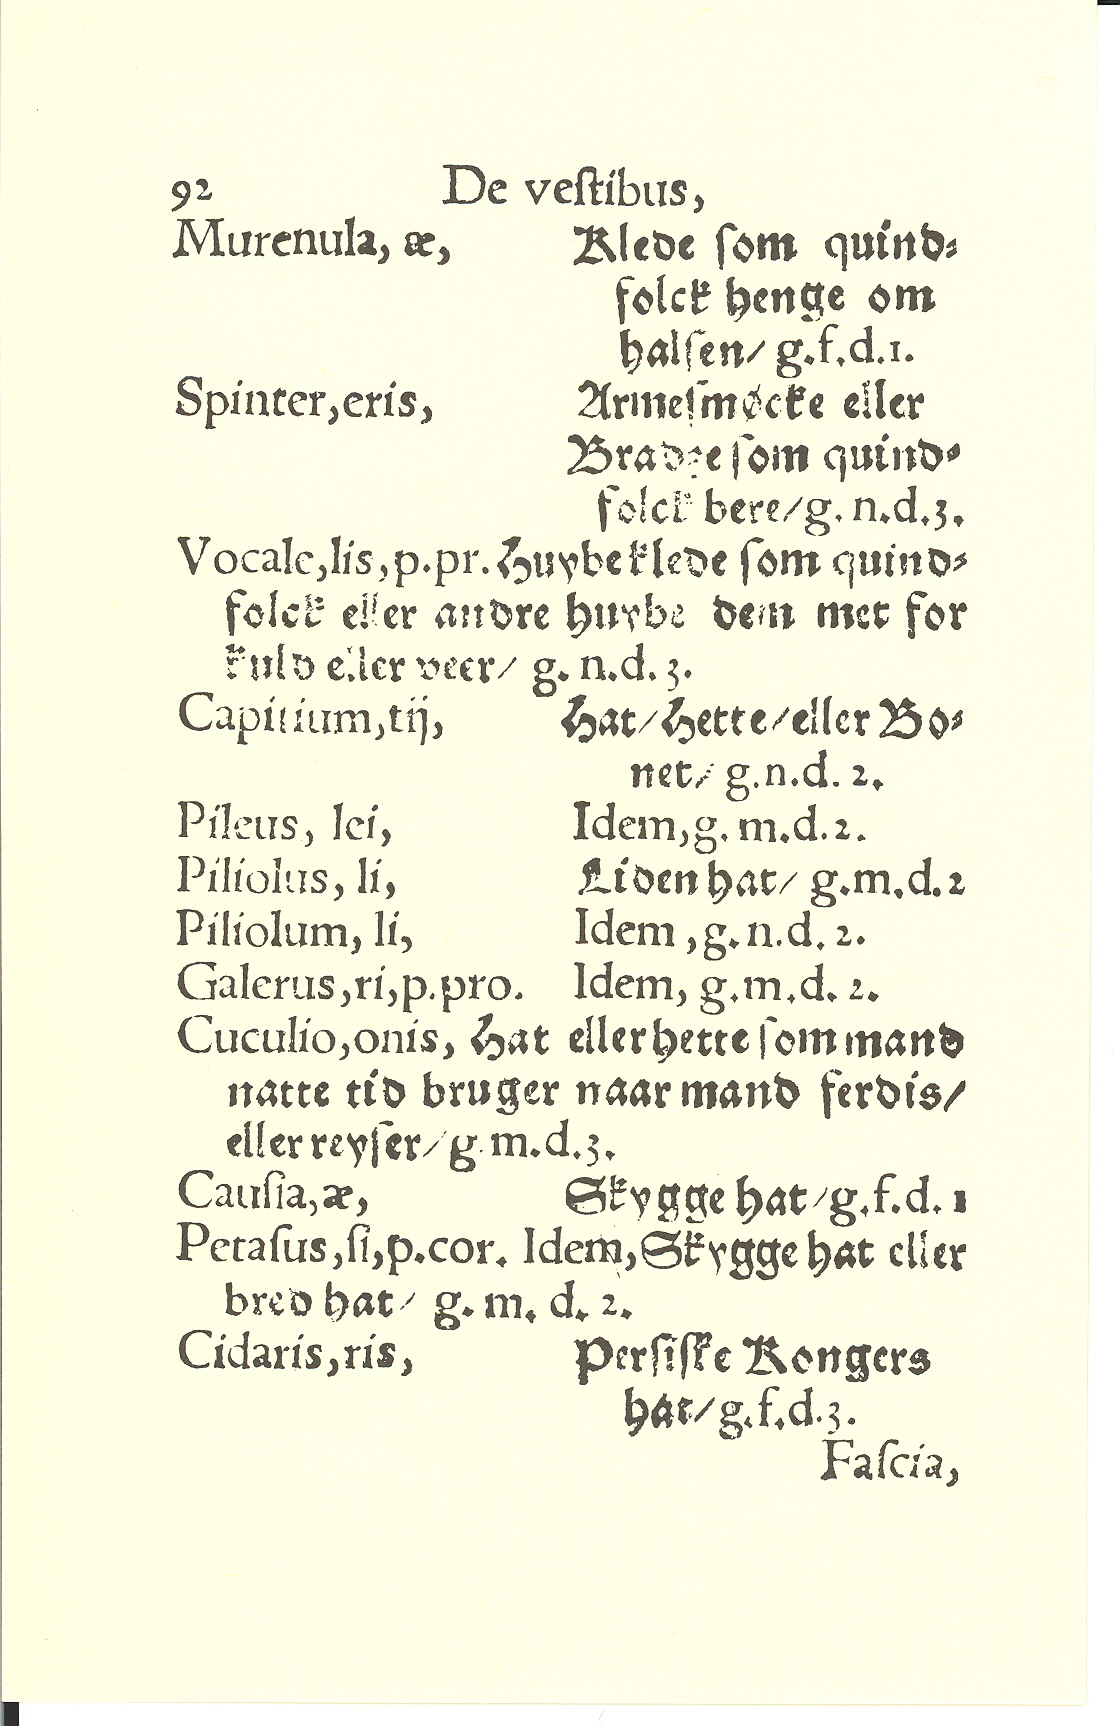 92 De veſtibus,
Murenula, æ, Klede ſom quind⸗
folck henge om
halſen/ g.f.d.1.
Spinter,eris, Armeſmøcke eller
Bradze ſom quind⸗
folck bere/g. n.d.3.
Vocale,lis,p.pr. Huybeklede ſom quind⸗
folck eller andre huybe dem met for
kuld eller veer/ g. n.d. 3.
Capitium,tij, Hat/Hette/eller Bo⸗
net/ g.n.d. 2.
Pileus, lei, Idem,g. m.d.2.
Piliolus, li, Liden hat/ g.m.d.2
Piliolum, li, Idem ,g.n.d. 2.
Galerus,ri,p.pro. Idem, g.m.d. 2.
Cuculio,onis, Hat eller hette ſom mand
natte tid bruger naar mand ferdis/
eller reyſer/g.m.d.3.
Cauſia,æ, Skygge hat/g.f.d. 1
Petaſus,ſi,p.cor. Idem,Skygge hat eller
bred hat/ g. m. d. 2.
Cidaris,ris, Perſiſke Kongers
hat/g.f.d.3.
Faſcia,